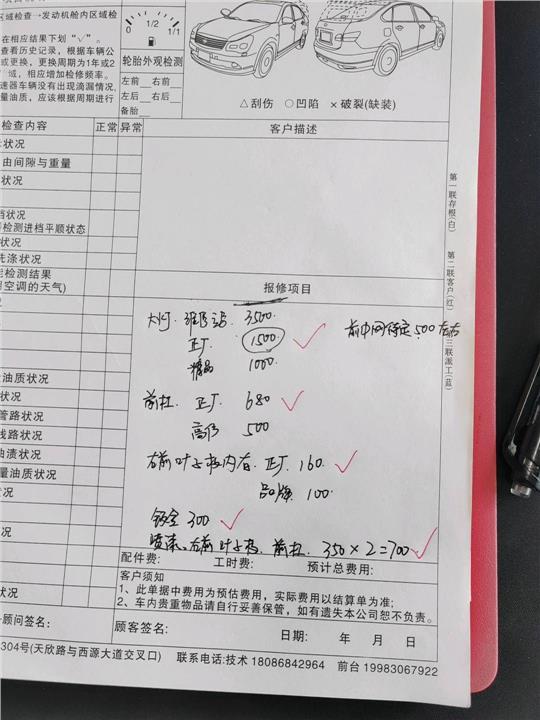 0 1/2 1/1
区域检查→发动机舱内区域检
在相应结果下划“√”。
查看历史记录，根据车辆公
或更换，更换周期为1年或2
域，相应增加检修频率。
速器车辆没有出现滴漏情况，
量油质，应该根据周期进行
轮胎外观检测
左前 右前
左后 右后
备胎
△刮伤 ○凹陷 ×破裂(缺装)
检查内容 正常 异常
客户描述
状况
由间隙与重量
状况
档状况
检测进档平顺状态
状况
洗涤状况
能检测结果
空调的天气)
状况
油质状况
状况
管路状况
线路状况
油渍状况
量油质状况
状况
第一联存根(白)
第二联客户(红)
三联派工(蓝)
报修项目
大灯. 3500
正厂 1500
精品 1000
前中网待定500左右
前杠. 正厂 680
高仿 500
右前叶子板内衬. 正厂. 160.
品牌. 100.
钣金 300
喷漆. 右前叶子板. 前杠. 350×2=700
配件费: 工时费: 预计总费用:
客户须知
1、此单据中费用为预估费用，实际费用以结算单为准;
2、车内贵重物品请自行妥善保管，如有遗失本公司恕不负责。
顾问签名: 顾客签名: 日期: 年 月 日
304号(天欣路与西源大道交叉口) 联系电话:技术 18086842964 前台 19983067922